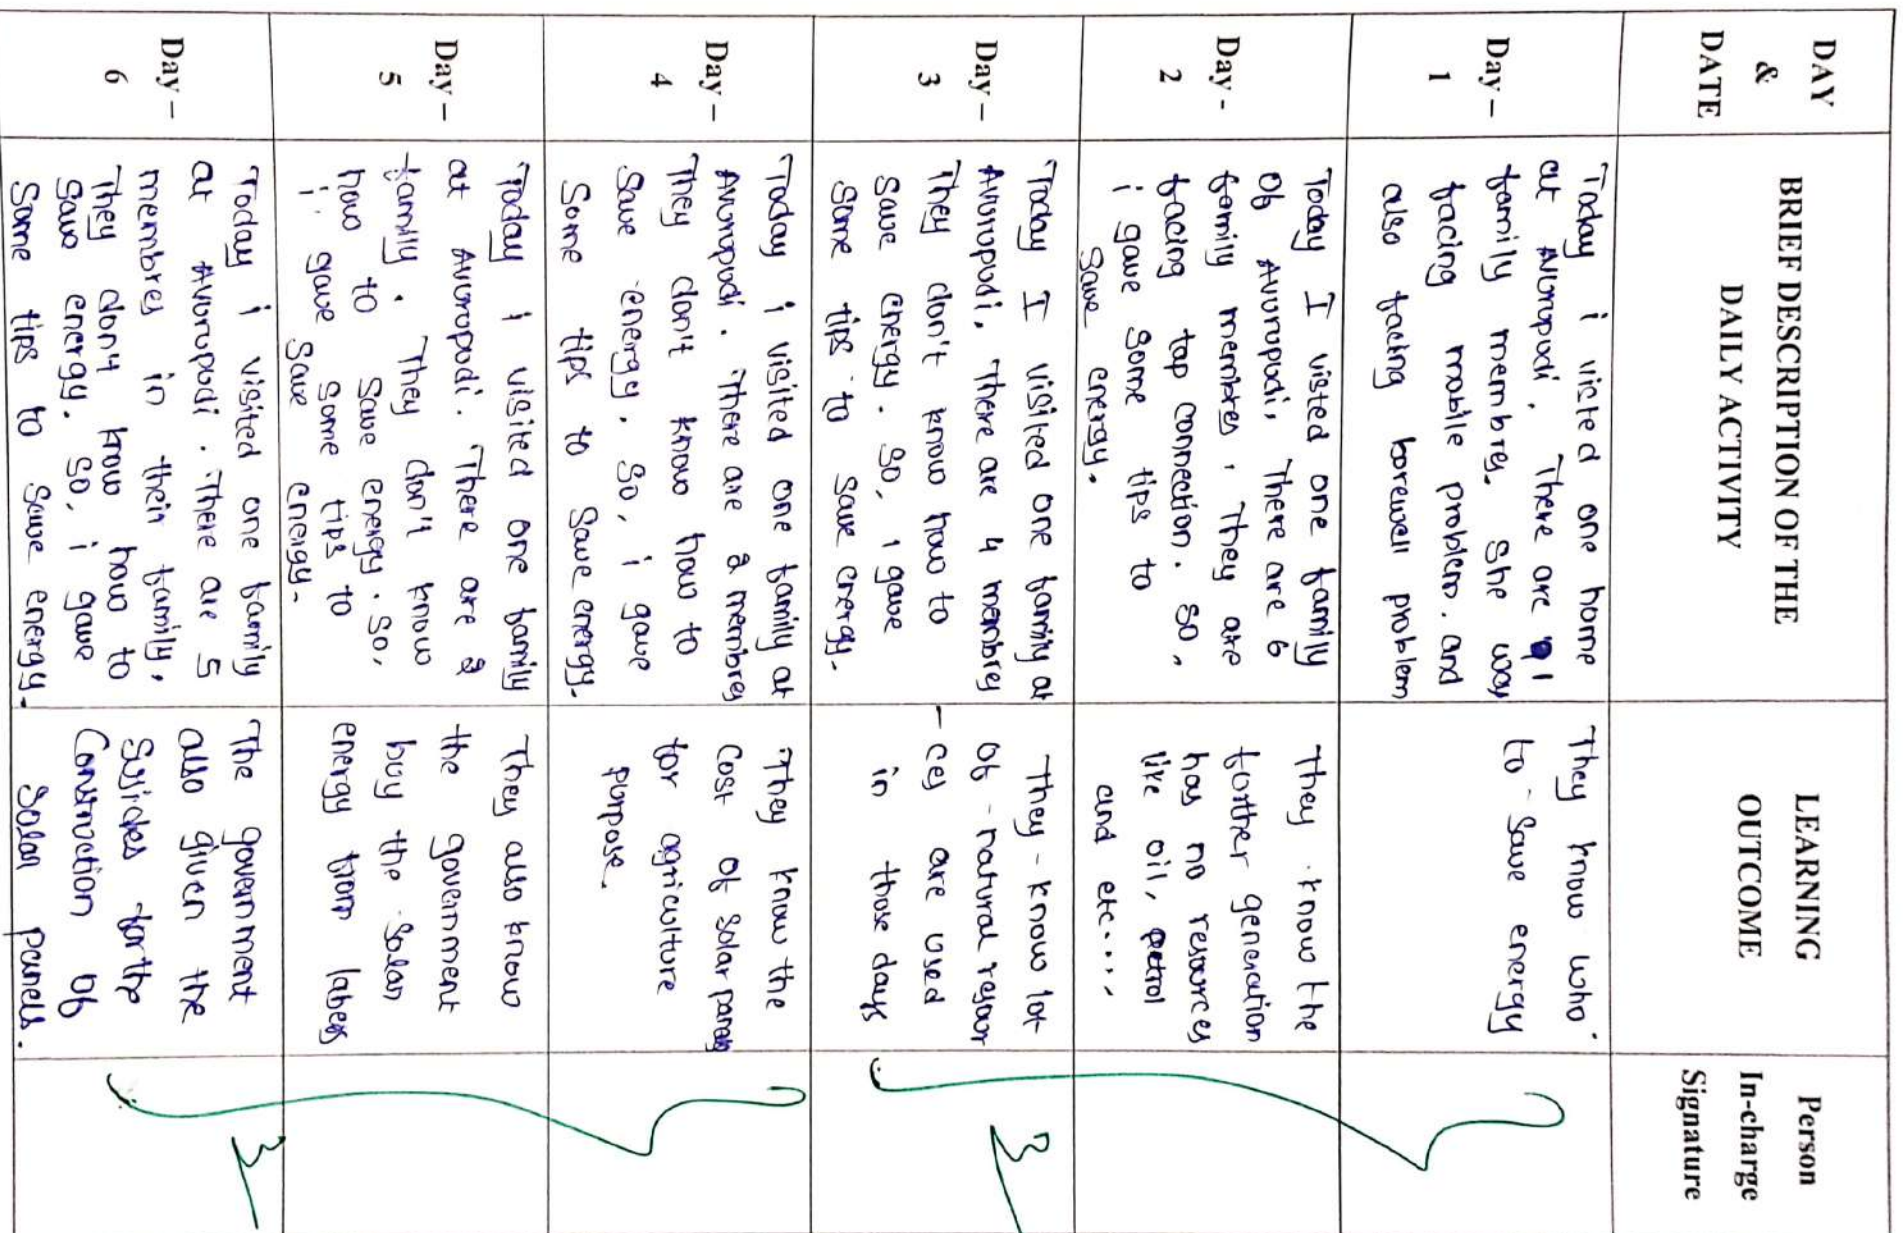 DAY
&
DATE
BRIEF DESCRIPTION OF THE
DAILY ACTIVITY
LEARNING
OUTCOME
Person
In-charge
Signature
Day –
1
Today i visted one home
at Avuropudi. There are 1
family membres. She was
facing mobile problem. and
also facing borewell problem
They know who
to save energy
Day -
2
Today I visted one family
of Avuropudi, There are 6
family membres, They are
facing tap connection. So,
i gave some tips to
save energy.
They know the
forther generation
has no resources
like oil, petrol
and etc.....
Day –
3
Today I visited one family at
Avuropudi, There are 4 membres
They don't know how to
save energy. So, i gave
some tips to save energy.
They know lot
of natural resour
-ces are used
in those days
Day –
4
Today i visited one family at
Avuropudi. There are 2 membres
They don't know how to
save energy. So, i gave
some tips to save energy.
They know the
cost of solar panels
for agriculture
purpose.
Day –
5
Today i visited one family
at Avuropudi. There are 2
family. They don't know
how to save energy. So,
i gave some tips to
save energy.
They also know
the government
buy the solar
energy from labers
Day –
6
Today i visited one family
at Avuropudi. There are 5
membres in their family,
They don't know how to
save energy. So, i gave
some tips to save energy.
The government
also given the
for the
Construction of
solar panels.